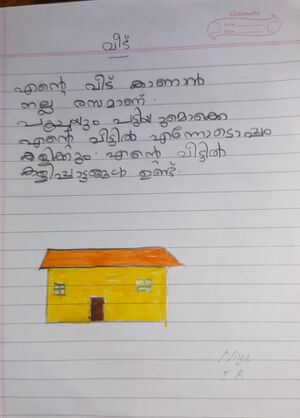 Classmate
Date
Page
വീട്
എന്റെ വീട് കാണാൻ
നല്ല രസമാണ്.
പൂച്ചയും പട്ടിയുമൊക്കെ
എന്റെ വീട്ടിൽ എന്നോടൊപ്പം
കളിക്കും. എന്റെ വീട്ടിൽ
കളിപ്പാട്ടങ്ങൾ ഉണ്ട്.
Niya
I A